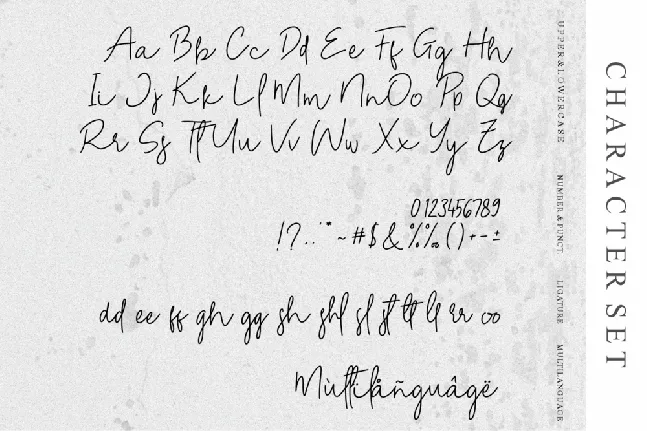 Aa Bb Cc Dd Ee Ff Gg Hh
Ii Jj Kk Ll Mm Nn Oo Pp Qq
Rr Ss Tt Uu Vv Ww Xx Yy Zz
0123456789
!?..¨*~#$&%‰()+-±
dd ee ff gh gg sh shl sl st tt lf rr oo
Mùltilåñguâgë
UPPER & LOWERCASE
NUMBER & PUNCT
LIGATURE
MULTILANGUAGE
CHARACTER SET